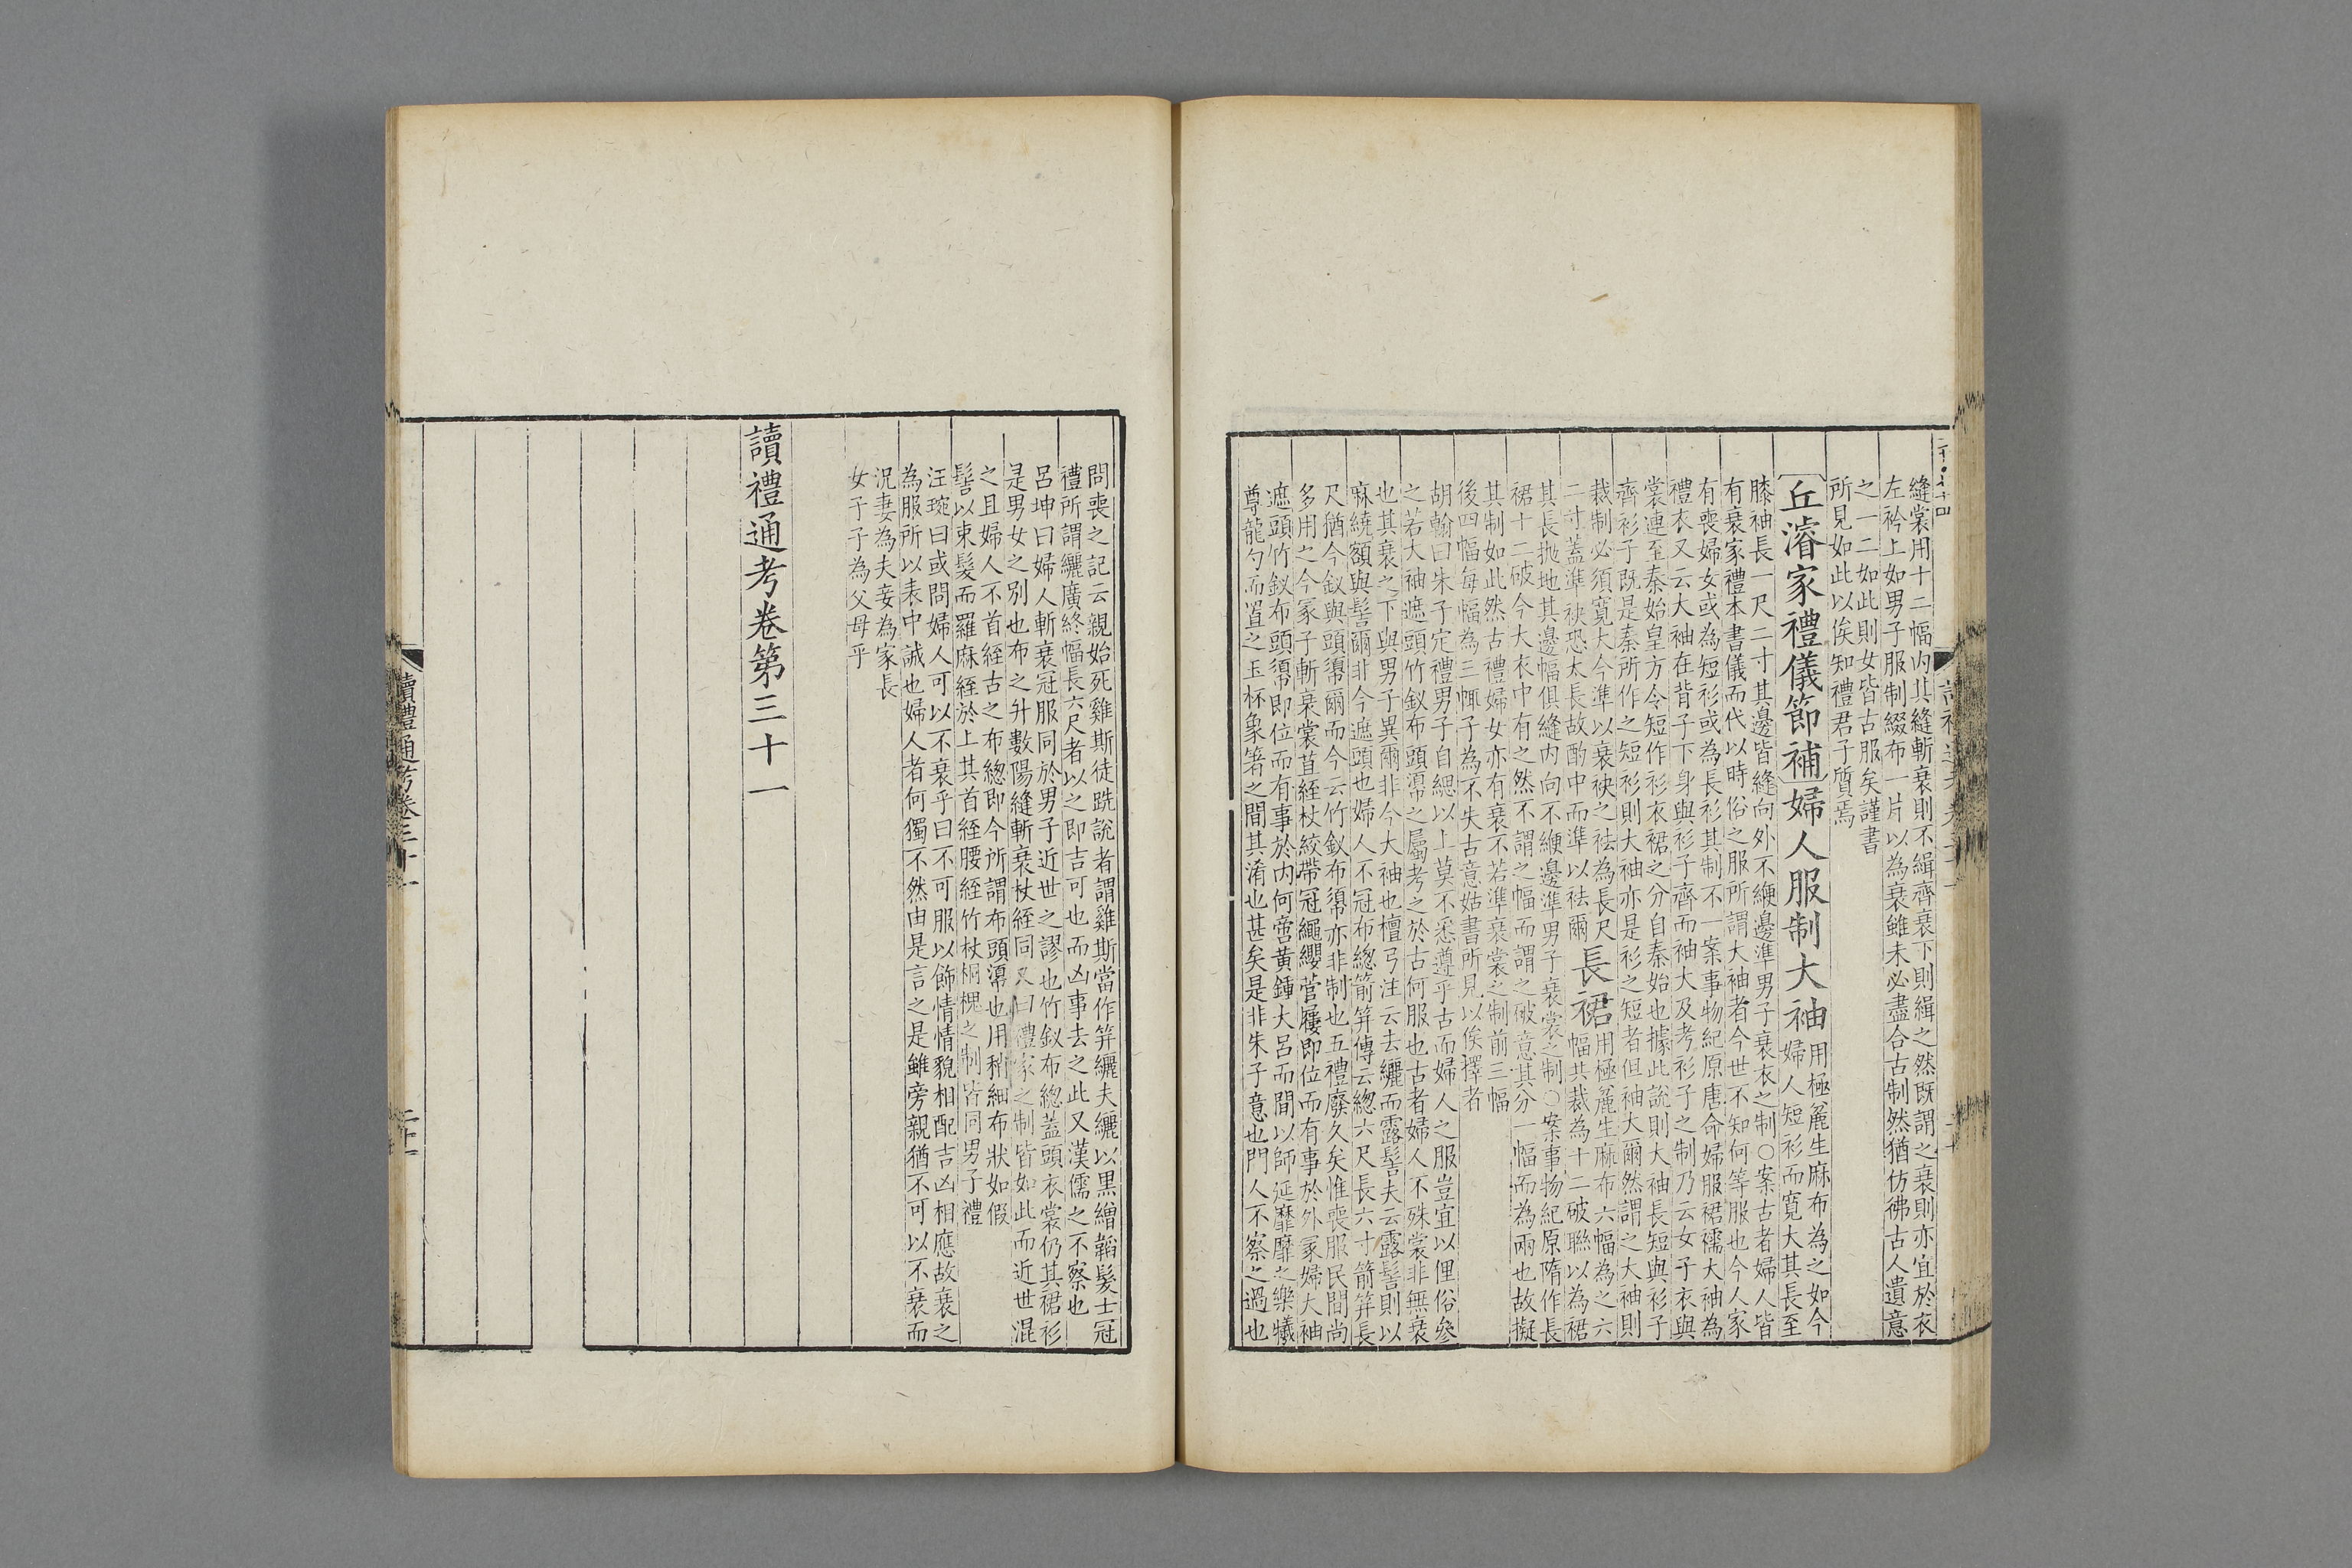 縫裳用十二幅内其縫斬衰則不緝齊衰下則緝之然既謂之衰則亦宜於衣
左衿上如男子服制綴布一片以為衰雖未必盡合古制然猶彷彿古人遺意
之一二如此則女皆古服矣謹書
所見如此以俟知禮君子質焉
丘濬家禮儀節補婦人服制大袖
用極麄生麻布為之如今
婦人短衫而寬大其長至
膝袖長一尺二寸其邊皆縫向外不緶邊準男子衰衣之制○案古者婦人皆
有衰家禮本書儀而代以時俗之服所謂大袖者今世不知何等服也今人家
有喪婦女或為短衫或為長衫其制不一案事物紀原唐命婦服裙襦大袖為
禮衣又云大袖在背子下身與衫子齊而袖大及考衫子之制乃云女子衣與
裳連至秦始皇方令短作衫衣裙之分自秦始也據此說則大袖長短與衫子
齊衫子既是秦所作之短衫則大袖亦是衫之短者但袖大爾然謂之大袖則
裁制必須寬大今準以衰袂之袪為長尺
二寸蓋準袂恐太長故酌中而準以袪爾
長裙
用極麄生麻布六幅為之六
幅共裁為十二破聯以為裙
其長拖地其邊幅俱縫内向不緶邊準男子衰裳之制○案事物紀原隋作長
裙十二破今大衣中有之然不謂之幅而謂之破意其分一幅而為兩也故擬
其制如此然古禮婦女亦有衰不若準衰裳之制前三幅
後四幅每幅為三㡇子為不失古意姑書所見以俟擇者
胡翰曰朱子定禮男子自緦以上莫不悉遵乎古而婦人之服豈宜以俚俗參
之若大袖遮頭竹釵布頭𢄼之屬考之於古何服也古者婦人不殊裳非無衰
也其衰之下與男子異爾非今大袖也檀弓注云去纚而露髻夫云露髻則以
麻繞額與髻爾非今遮頭也婦人不冠布總箭笄傳云總六尺長六寸箭笄長
尺猶今釵與頭𢄼爾而今云竹釵布𢄼亦非制也五禮廢久矣惟喪服民間尚
多用之今冢子斬衰裳苴絰杖絞帶冠繩纓菅屨即位而有事於外冢婦大袖
遮頭竹釵布頭𢄼即位而有事於内何啻黃鍾大呂而間以師延靡靡之樂犧
尊龍勺而置之玉杯象箸之間其淆也甚矣是非朱子意也門人不察之過也
問喪之記云親始死雞斯徒跣說者謂雞斯當作笄纚夫纚以黑繒韜髮士冠
禮所謂纚廣終幅長六尺者以之即吉可也而凶事去之此又漢儒之不察也
呂坤曰婦人斬衰冠服同於男子近世之謬也竹釵布總蓋頭衣裳仍其裙衫
是男女之別也布之升數陽縫斬衰杖絰同又曰禮家之制皆如此而近世混
之且婦人不首絰古之布總即今所謂布頭𢄼也用稍細布狀如假
髻以束髮而羅麻絰於上其首絰腰絰竹杖桐槐之制皆同男子禮
汪琬曰或問婦人可以不衰乎曰不可服以飾情情貌相配吉凶相應故衰之
為服所以表中誠也婦人者何獨不然由是言之是雖旁親猶不可以不衰而
況妻為夫妾為家長
女子子為父母乎
讀禮通考卷第三十一
讀禮通考卷三十一